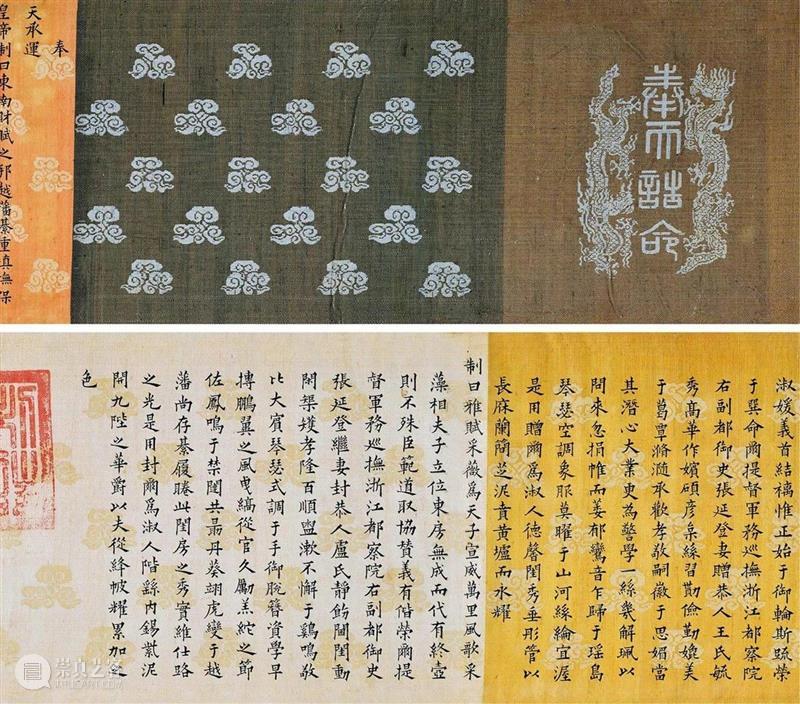 奉天誥命
奉
天承運
皇帝制曰東南財賦之邦越藩綦重真撫保
淑媛義首結褵惟正始于御輪斯䟽榮
于巽命爾提督軍務巡撫浙江都察院
右副都御史張延登妻贈恭人王氏毓
秀髙華作嬪碩彦枲絲習勤儉勤媲美
于葛覃滫隨承歡孝敬嗣徽于思媚當
其潛心大業更為警學一絲幾解珮以
問來忽捐帷而姜郁鸞音乍歸于瑶島
琴瑟空調象服莫曜于山河絲綸宜渥
是用贈爾爲淑人德馨閨秀垂彤管以
長庥蘭簡芝泥賁黃壚而永耀
制曰雅賦采薇爲天子宣威萬里風歌采
藻相夫子立位東房無成而代有終壼
則不殊臣範道取協賛義有偕榮爾提
督軍務巡撫浙江都察院右副都御史
張延登繼妻封恭人盧氏靜飭閫閨動
閑榘矱孝隆百順盥漱不懈于鷄鳴敬
比大賓琴瑟式調于手御脫簪資學早
摶鵬翼之風曳縞從官久勵羔紽之節
佐鳳鳴于禁闥共最丹葵翊虎變于越
藩尚存綦履睠此閨房之秀實維仕路
之光是用封爾爲淑人階繇内錫紫泥
開九陛之華爵以夫從絳帔耀累加之
色
崇真艺客